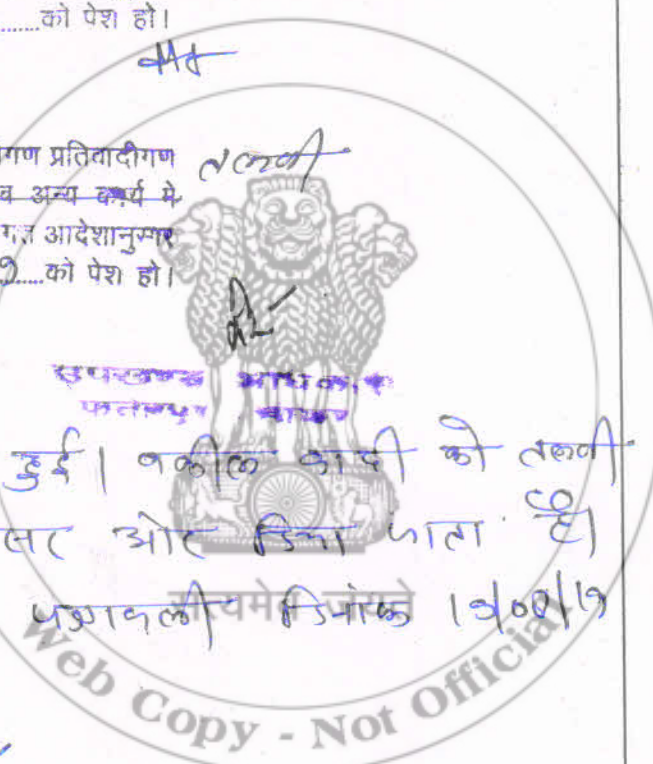 को पेश हो।
गण प्रतिवादीगण तलवी
व अन्य कार्य मे
गत आदेशानुसार
को पेश हो।
उपखण्ड
हुई। वकील वादी को तलवी
ओर दिया जाता है।
पत्रावली दिनांक
सत्यमेव जयते
Web Copy - Not Official